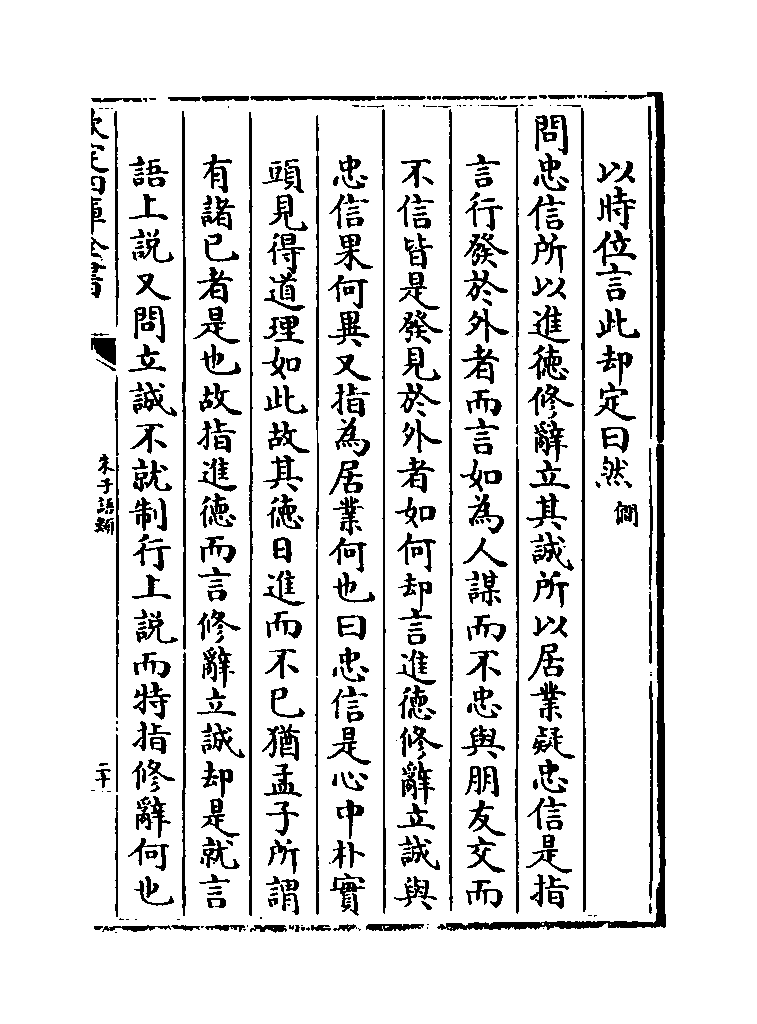 以時位言此却定曰然 僩
問忠信所以進徳修辭立其誠所以居業疑忠信是指
言行發於外者而言如為人謀而不忠與朋友交而
不信皆是發見於外者如何却言進徳修辭立誠與
忠信果何異又指為居業何也曰忠信是心中朴實
頭見得道理如此故其徳日進而不已猶孟子所謂
有諸已者是也故指進徳而言修辭立誠却是就言
語上説又問立誠不就制行上説而特指修辭何也
欽定四庫全書
朱子語類
二十